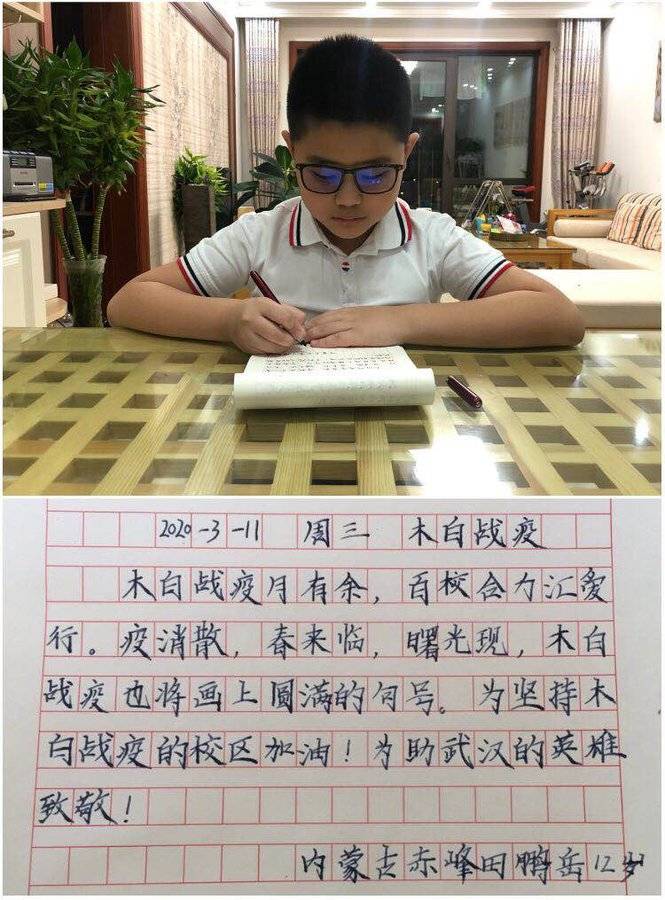 2020-3-11 周三 木白战疫
木白战疫月有余，百校合力汇爱
行。疫消散，春来临，曙光现，木白
战疫也将画上圆满的句号。为坚持木
白战疫的校区加油！为助武汉的英雄
致敬！
内蒙古赤峰田鹏岳12岁